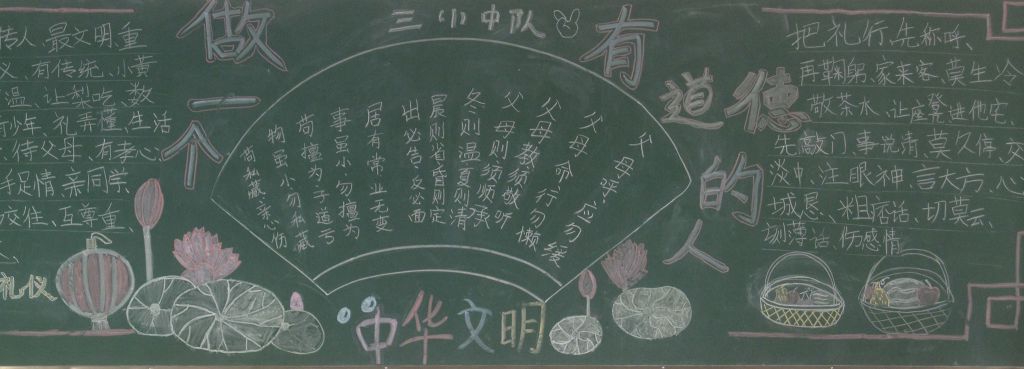 三小中队
做一个有道德的人
传人、最文明重
义、有传统、小黄
温、让梨吃、数
少年、孔弄懂、生活
侍父母、有孝心
手足情、亲同学
交往、互尊重、
礼仪
父母呼 应勿缓
父母命 行勿懒
父母教 须敬听
父母则 须顺承
冬则温 夏则清
晨则省 昏则定
出必告 反必面
居有常 业无变
事虽小 勿擅为
苟擅为 子道亏
物虽小 勿私藏
苟私藏 亲心伤
把礼行、先称呼、
再鞠躬、家来客、莫生冷
敬茶水、让座凳、进他宅、
先敲门、事说清、莫久停、交
谈中、注眼神、言大方、心
城恳、粗恶话、切莫云、
刻薄话、伤感情
中华文明